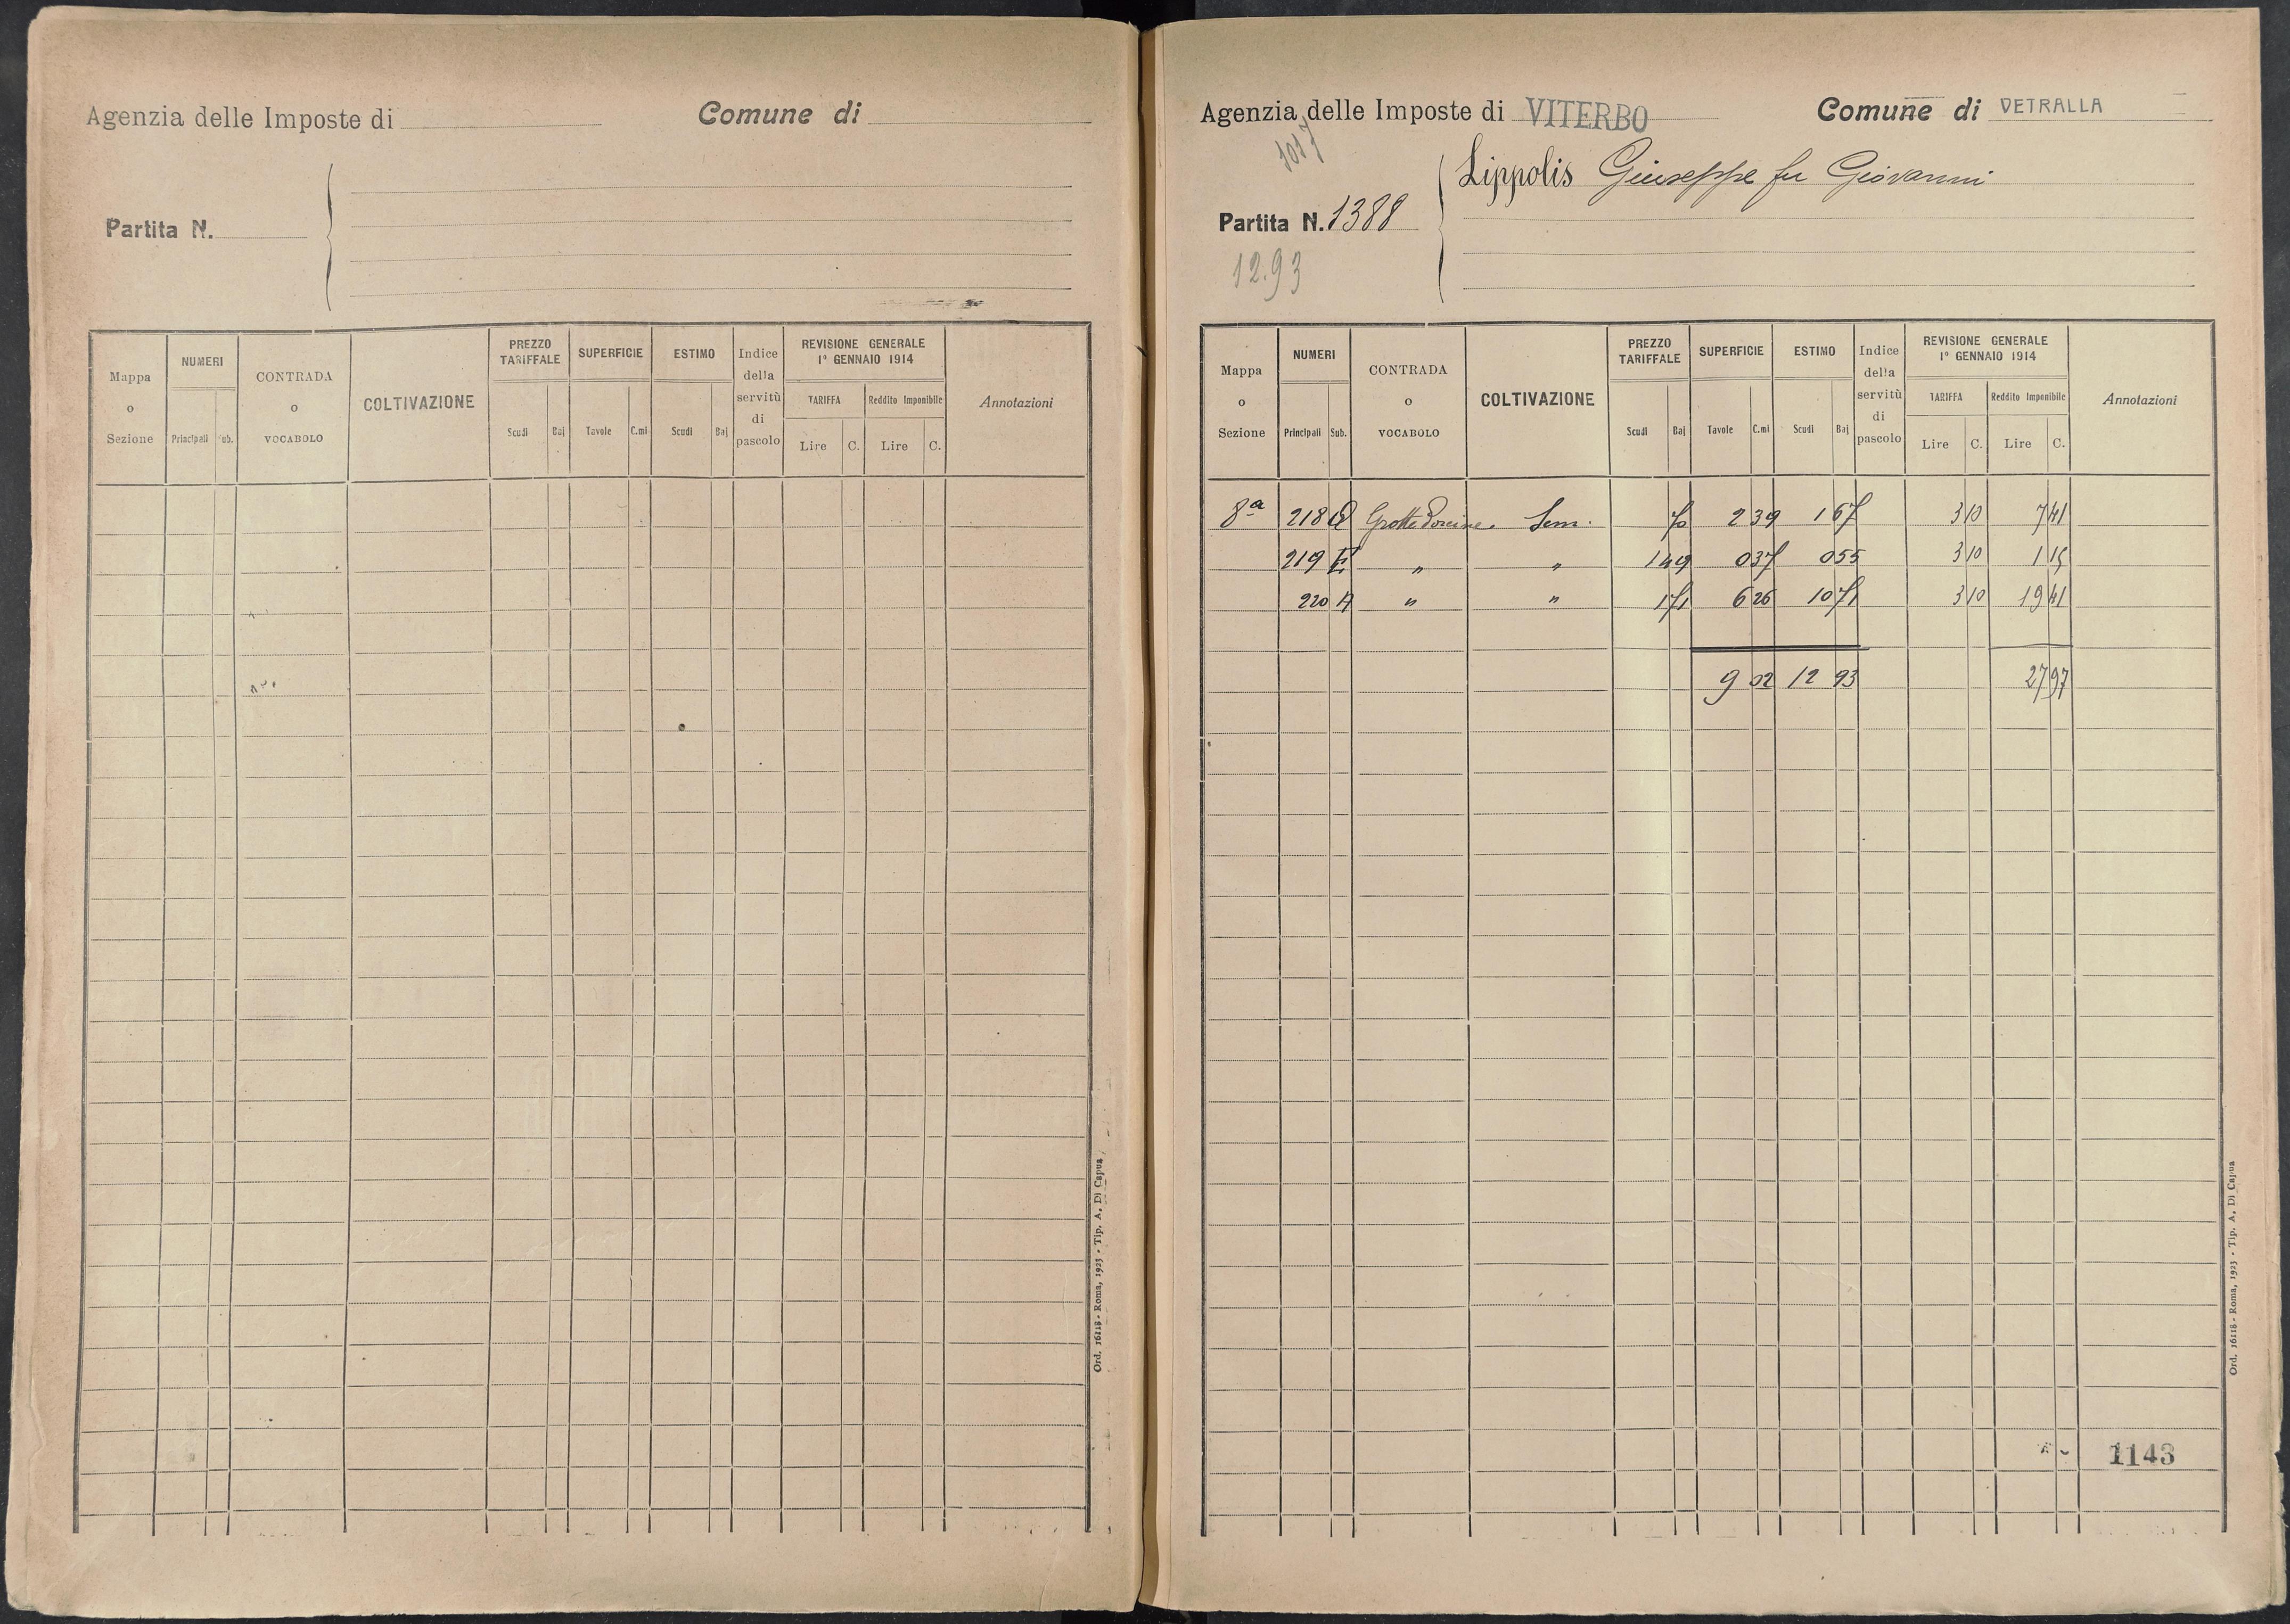 Agenzia delle Imposte di
Comune di
Partita N.
Mappa o Sezione
NUMERI
Principali
Sub.
CONTRADA o VOCABOLO
COLTIVAZIONE
PREZZO TARIFFALE
Scudi Baj
SUPERFICIE
Tavole C.mi
ESTIMO
Scudi Baj
Indice della servitù di pascolo
REVISIONE GENERALE
1° GENNAIO 1914
TARIFFA
Lire C.
Reddito Imponibile
Lire C.
Annotazioni
Ord. 16118 - Roma, 1923 - Tip. A. Di Capua
Agenzia delle Imposte di VITERBO
Comune di VETRALLA
1017
Lippolis Giuseppe fu Giovanni
Partita N. 1388
12.93
Mappa o Sezione
NUMERI
Principali Sub.
CONTRADA o VOCABOLO
COLTIVAZIONE
PREZZO TARIFFALE
Scudi Baj
SUPERFICIE
Tavole C.mi
ESTIMO
Scudi Baj
Indice della servitù di pascolo
REVISIONE GENERALE
1° GENNAIO 1914
TARIFFA
Lire C.
Reddito Imponibile
Lire C.
Annotazioni
8a 218 Sem. 70 2 39 1 67 3 10 7 41
219 E " " 1 49 0 37 0 55 3 10 1 15
220 A " " 1 71 6 26 10 71 3 10 19 41
9 02 12 93 27 97
1143
Ord. 16118 - Roma, 1923 - Tip. A. Di Capua